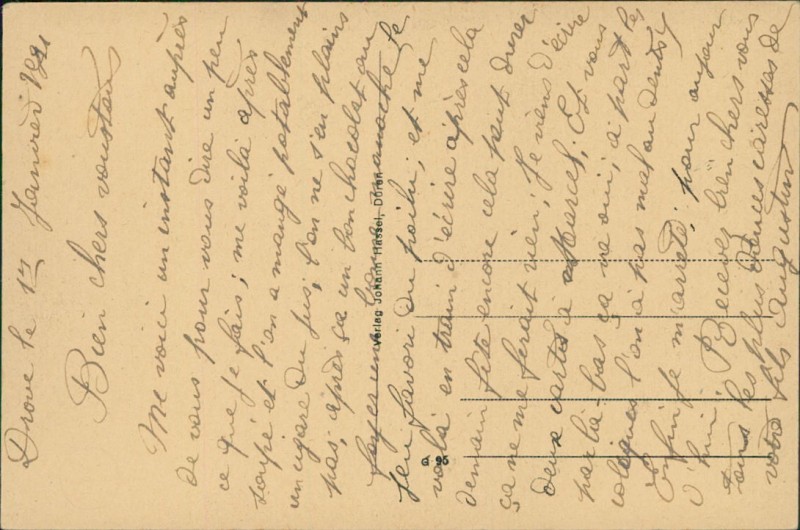 Drove le 1er Janvier 1921
Bien chers vous tous
Me voici un instant auprès
de vous pour vous dire un peu
ce que je fais; me voilà après
soupé et l'on a mangé potablement
un cigare du jus; l'on ne s'en plains
pas, après ça un bon chocolat au
foyer une manoche le
jeu favori du poilu; et me
voilà en train d'écrire après cela
demain fête encore cela peut durer
ça ne me ferait rien; Je viens d'écrire
deux cartes à Marcel; Et vous
par là-bas ça va oui; à part les
l'on a pas mal au dents,
Enfin je m'arrête pour aujour
d'hui; Recevez bien chers vous
tous les plus douces caresses de
votre fils Augustin
Verlag Johann Hassel, Düren
a 95